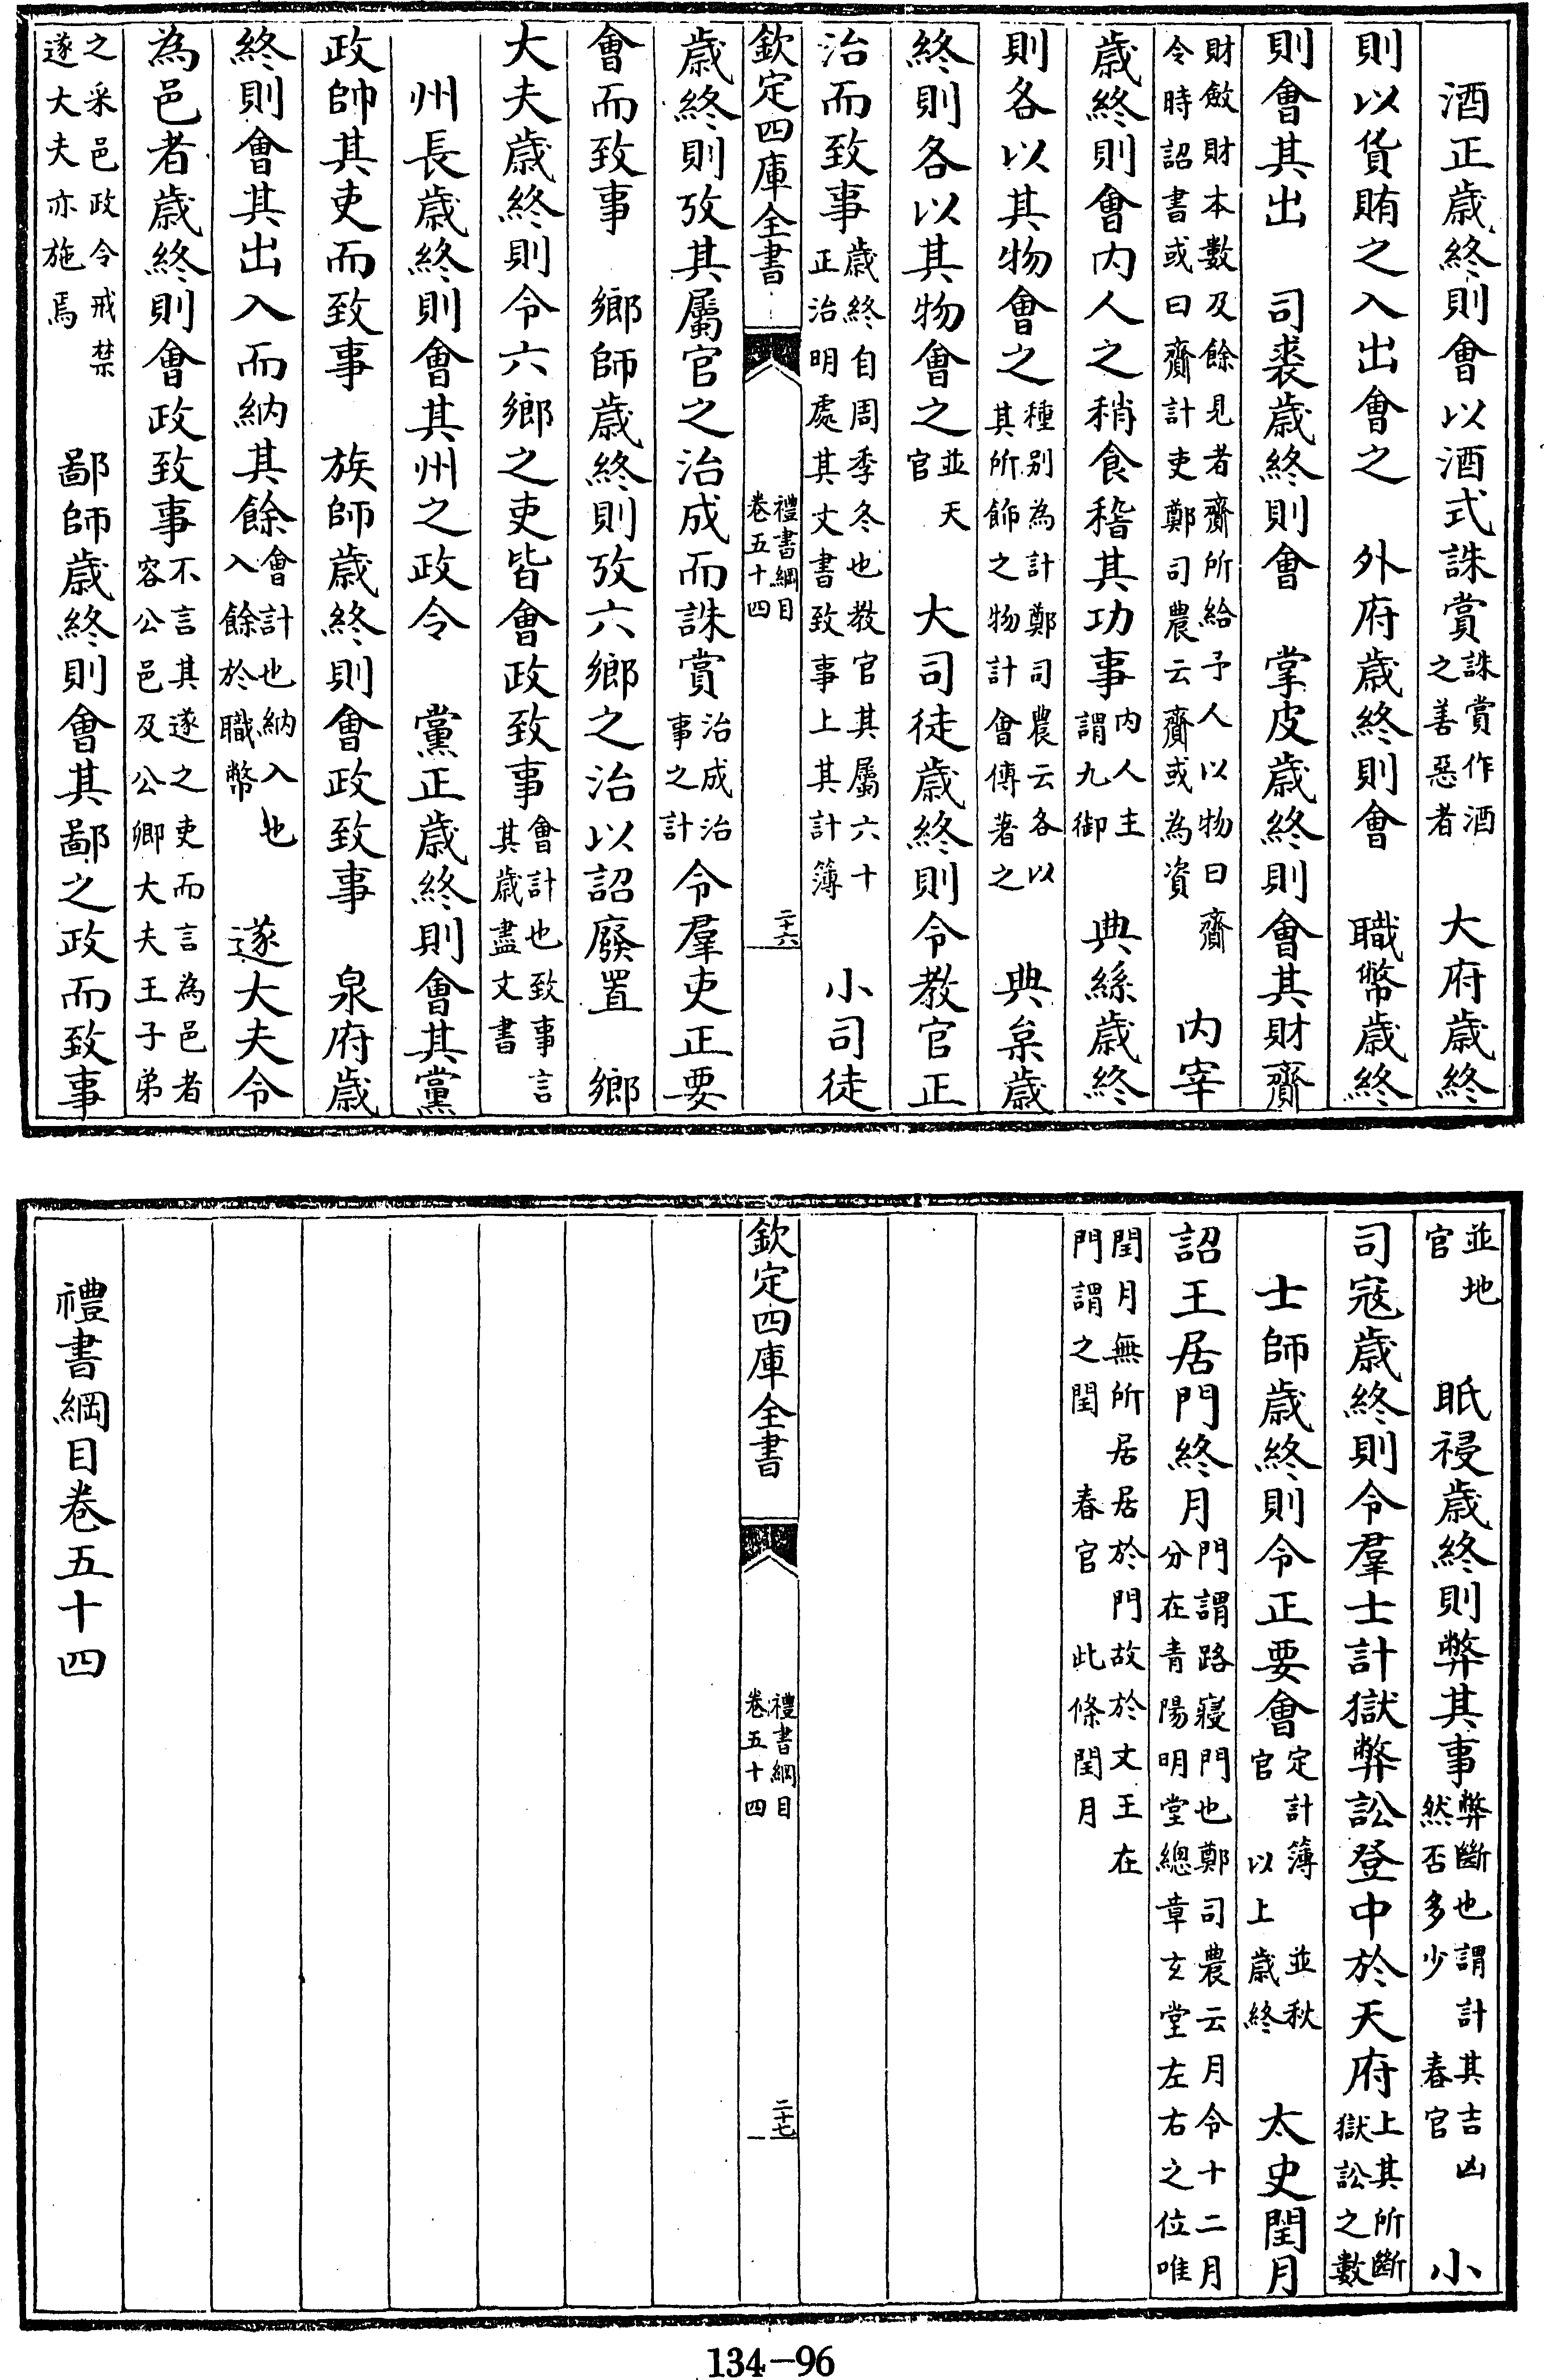 酒正歳終則會以酒式誅賞誅賞作酒之善惡者　大府歳終
則以貨賄之入出會之　外府歳終則會　職幣歳終
則會其出　司裘歳終則會　掌皮歳終則會其財齎
財斂財本數及餘見者齎所給予人以物曰齎今時詔書或曰齎計吏鄭司農云齎或為資　内宰
歳終則會内人之稍食稽其功事内人主謂九御　典絲歳終
則各以其物會之種别為計鄭司農云各以其所飾之物計會傅著之　典枲歳
終則各以其物會之並天官　大司徒歳終則令教官正
治而致事歳終自周季冬也教官其屬六十正治明處其文書致事上其計簿　小司徒
欽定四庫全書
禮書綱目
卷五十四
二十六
歳終則攷其屬官之治成而誅賞治成治事之計令羣吏正要
會而致事　鄉師歳終則攷六鄉之治以詔廢置　鄉
大夫歳終則令六鄉之吏皆會政致事會計也致事言其歳盡文書
州長歳終則會其州之政令　黨正歳終則會其黨
政帥其吏而致事　族師歳終則會政致事　泉府歳
終則會其出入而納其餘會計也納入也入餘於職幣　遂大夫令
為邑者歳終則會政致事不言其遂之吏而言為邑者容公邑及公卿大夫王子弟
之采邑政令戒禁遂大夫亦施焉　鄙師歳終則會其鄙之政而致事
並地官　眂祲歳終則弊其事弊斷也謂計其吉凶然否多少　春官　小
司寇歳終則令羣士計獄弊訟登中於天府上其所斷獄訟之數
士師歳終則令正要會定計簿　並秋官　以上歳終　太史閏月
詔王居門終月門謂路寢門也鄭司農云月令十二月分在青陽明堂總章玄堂左右之位唯
閏月無所居居於門故於文王在門謂之閏　春官　此條閏月
欽定四庫全書
禮書綱目
卷五十四
二十七
禮書綱目卷五十四
134-96